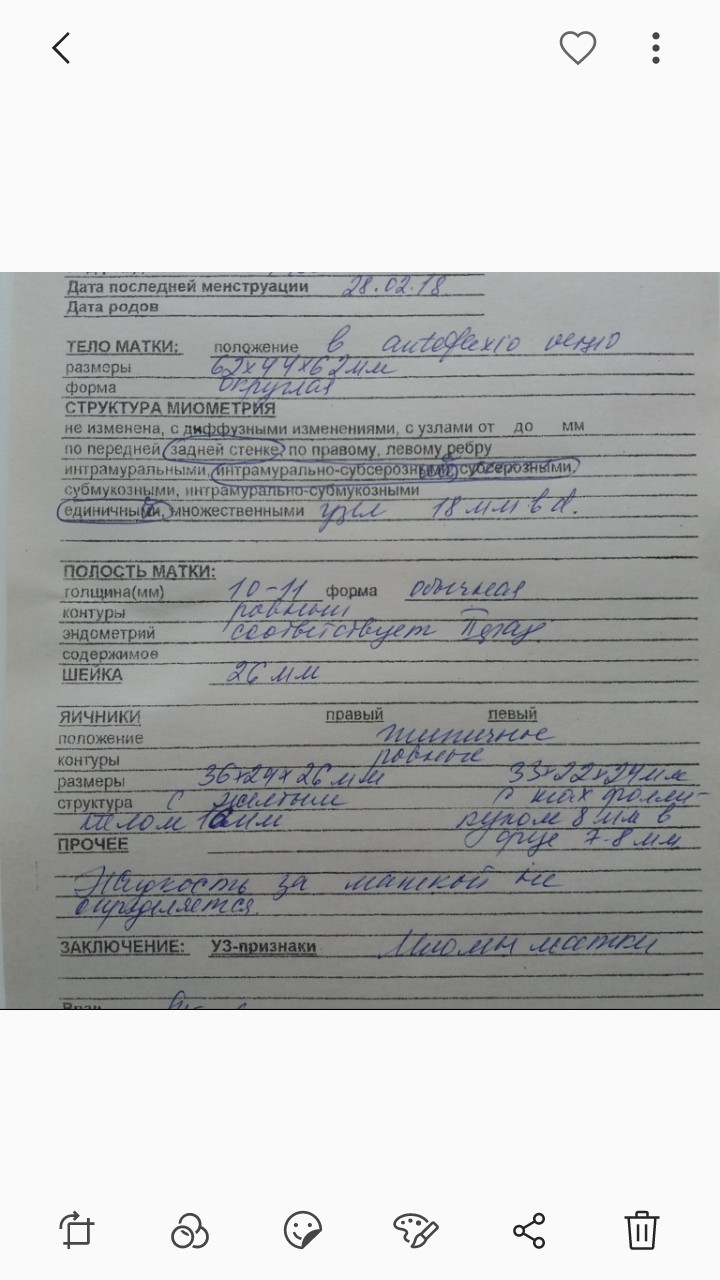 Дата последней менструации 28.02.18.
Дата родов
ТЕЛО МАТКИ: положение в anteflexio versio
размеры 62х44х62мм
форма округлая
СТРУКТУРА МИОМЕТРИЯ
не изменена, с диффузными изменениями, с узлами от до мм
по передней, задней стенке, по правому, левому ребру
интрамуральными, интрамурально-субсерозным, субсерозными,
субмукозными, интрамурально-субмукозными
единичным, множественными узел 18 мм в d.
ПОЛОСТЬ МАТКИ:
толщина(мм) 10-11 форма обычная
контуры ровный
эндометрий соответствует II фазе
содержимое
ШЕЙКА 26 мм
ЯИЧНИКИ правый левый
положение типичное
контуры ровные
размеры 36х24х26мм 33х22х24мм
структура с желтым с мах фолли-
телом 16мм кулом 8 мм в
ПРОЧЕЕ 7-8 мм
Жидкость за маткой не
определяется.
ЗАКЛЮЧЕНИЕ: УЗ-признаки Миомы матки
Врач